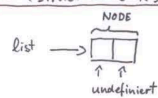 NODE
list
undefiniert